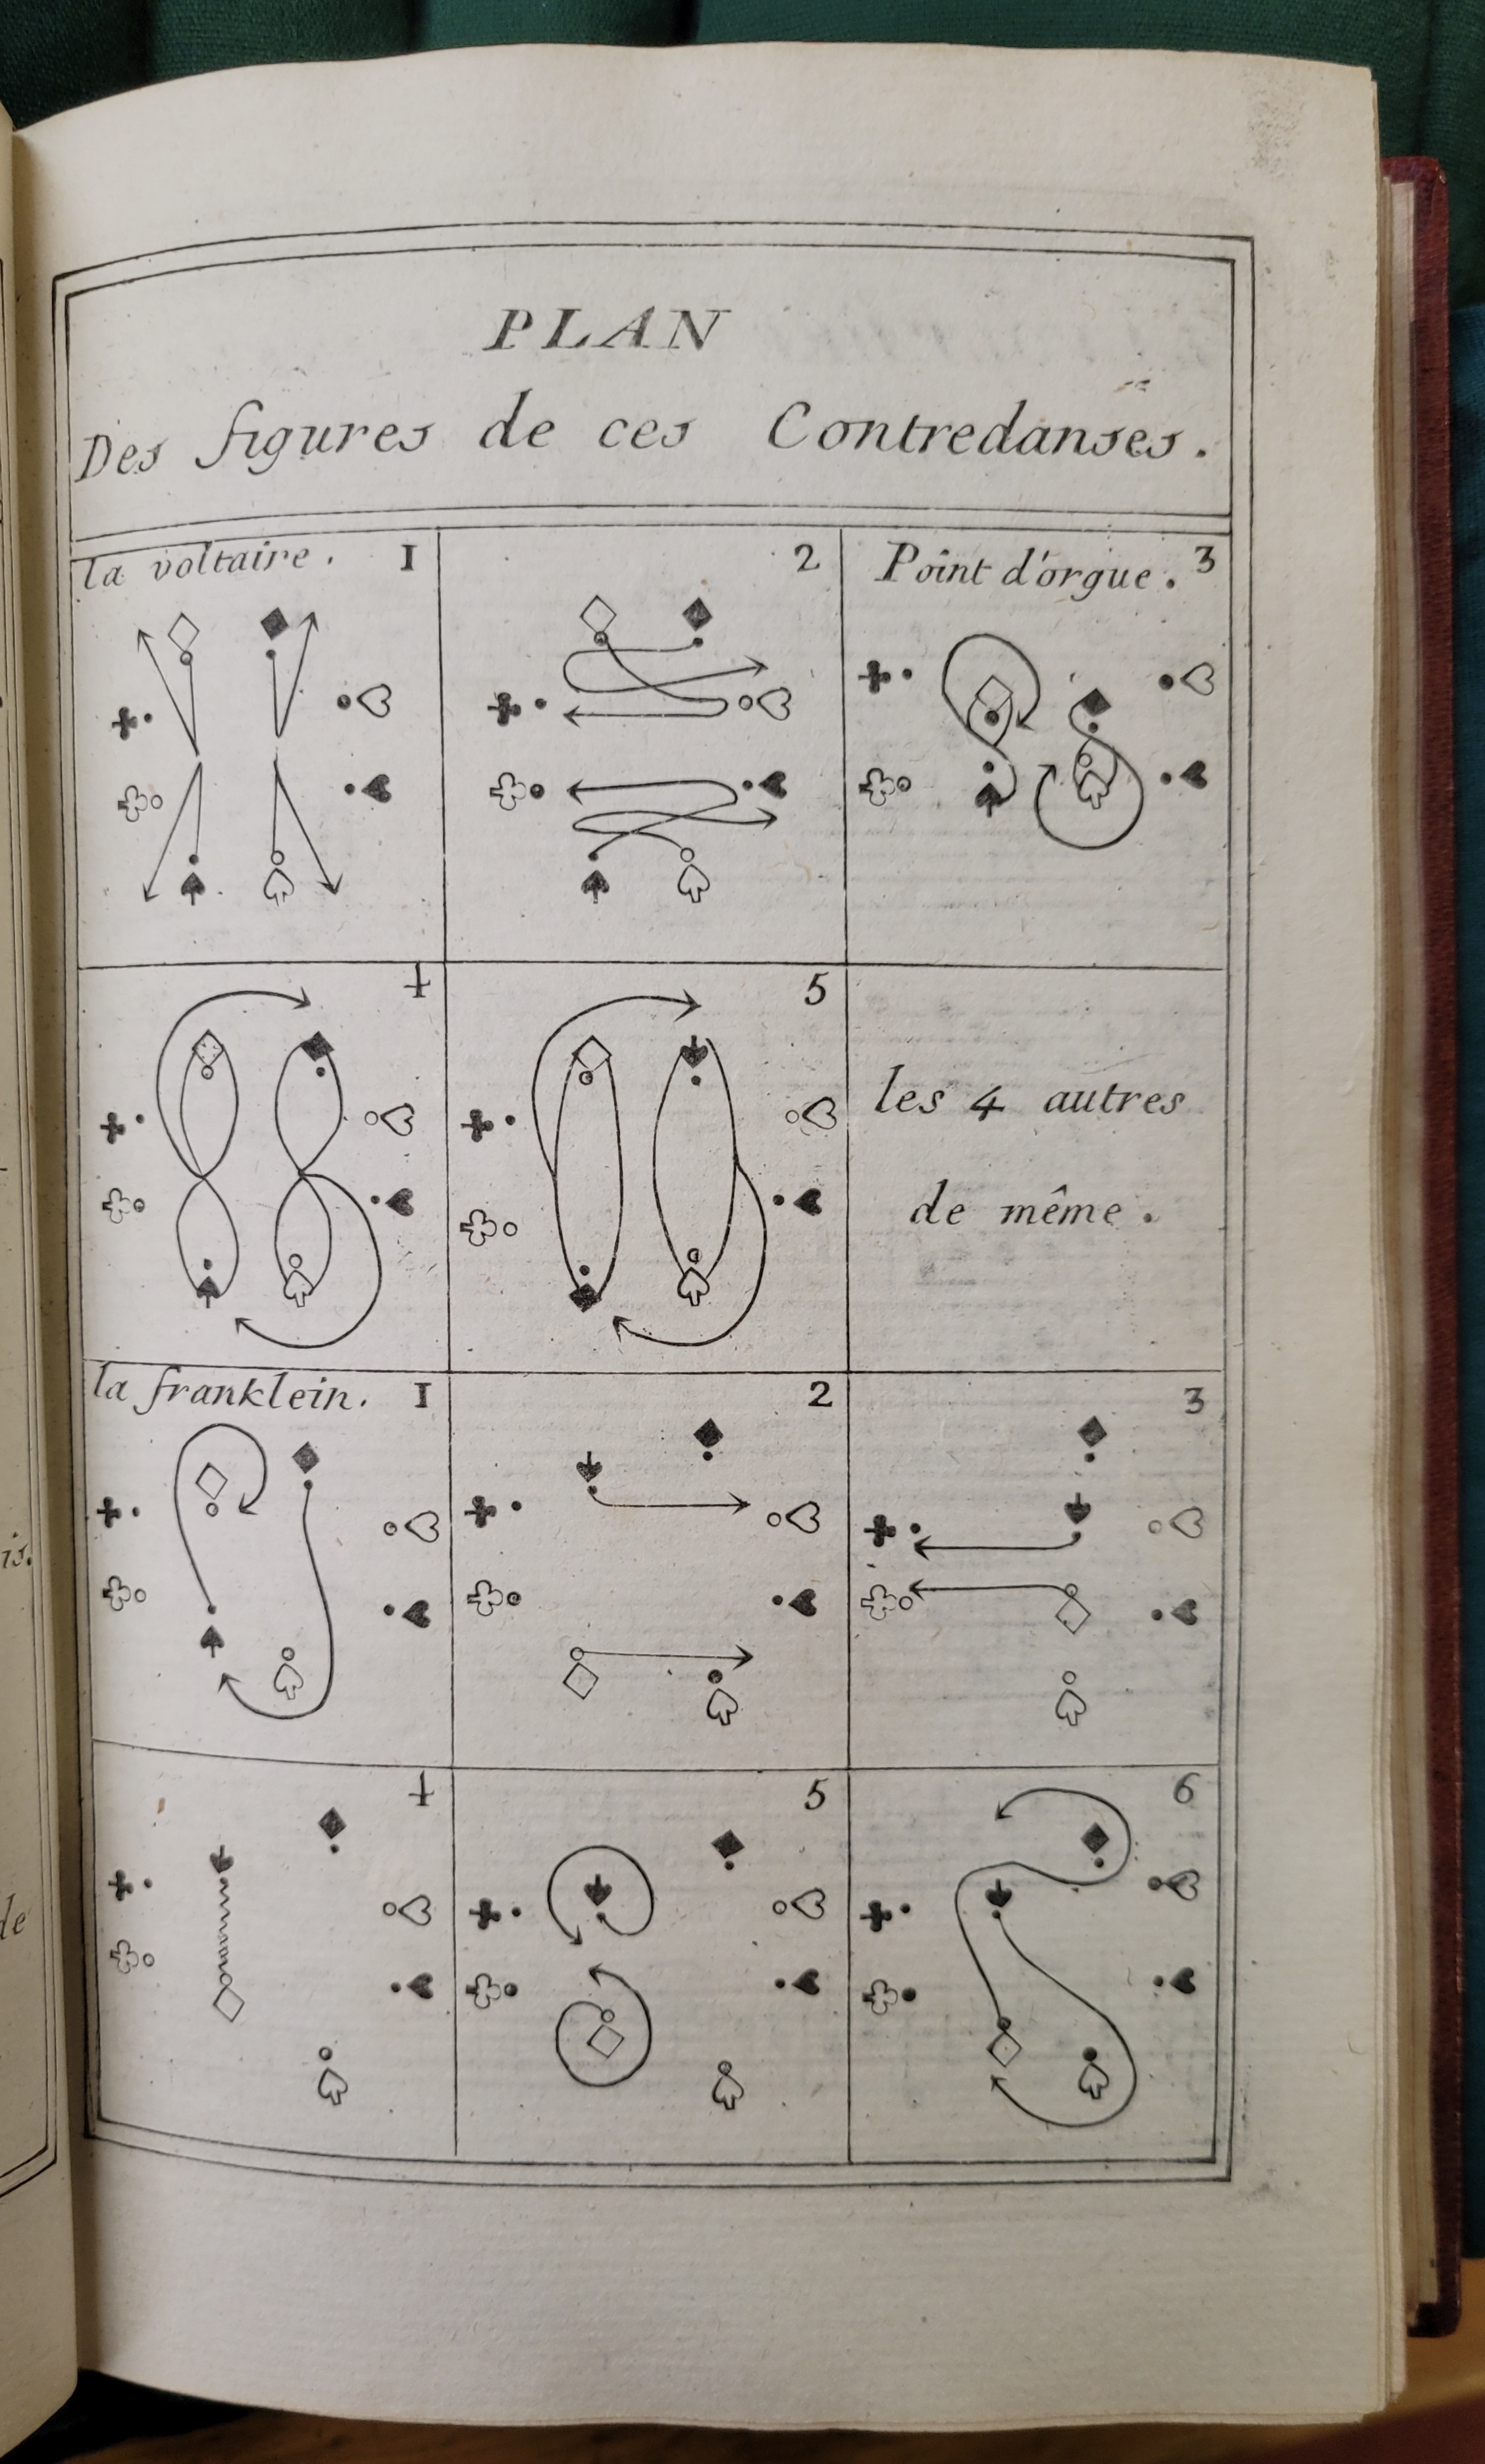 PLAN
Des figures de ces Contredanses.
la voltaire. 1
2
Point d'orgue. 3
4
5
les 4 autres
de même.
la franklein. 1
2
3
4
5
6
is.
de